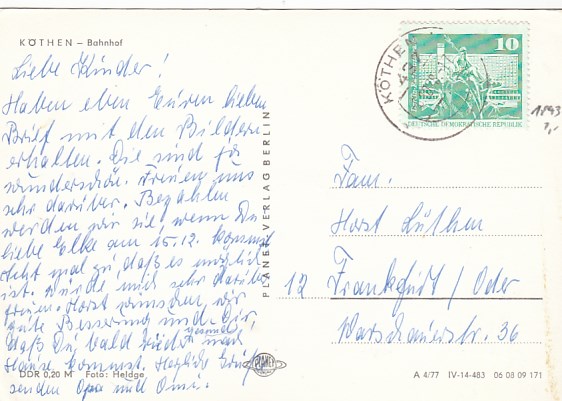 KÖTHEN – Bahnhof
Liebe Kinder!
Haben eben Euren lieben
Brief mit den Bildern
erhalten. Die sind ja
wunderschön. Freuen uns
sehr darüber. Bezahlen
werden wir sie, wenn Du
liebe Elke am 15.12. kommst
Seht mal zu, daß es möglich
ist. Würde mich sehr darüber
freuen. Horst wünschen wir
gute Besserung und Dir,
daß Du bald wieder nach
Hause kommst. Herzliche Grüße
senden Opa und Omi.
DDR 0,20 M Foto: Heldge
PLANET-VERLAG BERLIN
PLANET
KÖTHEN
10
DEUTSCHE DEMOKRATISCHE REPUBLIK
1893
1,-
Fam.
Horst Lüthen
12 Frankfurt/Oder
Warschauerstr. 36
A 4/77 IV-14-483 06 08 09 171